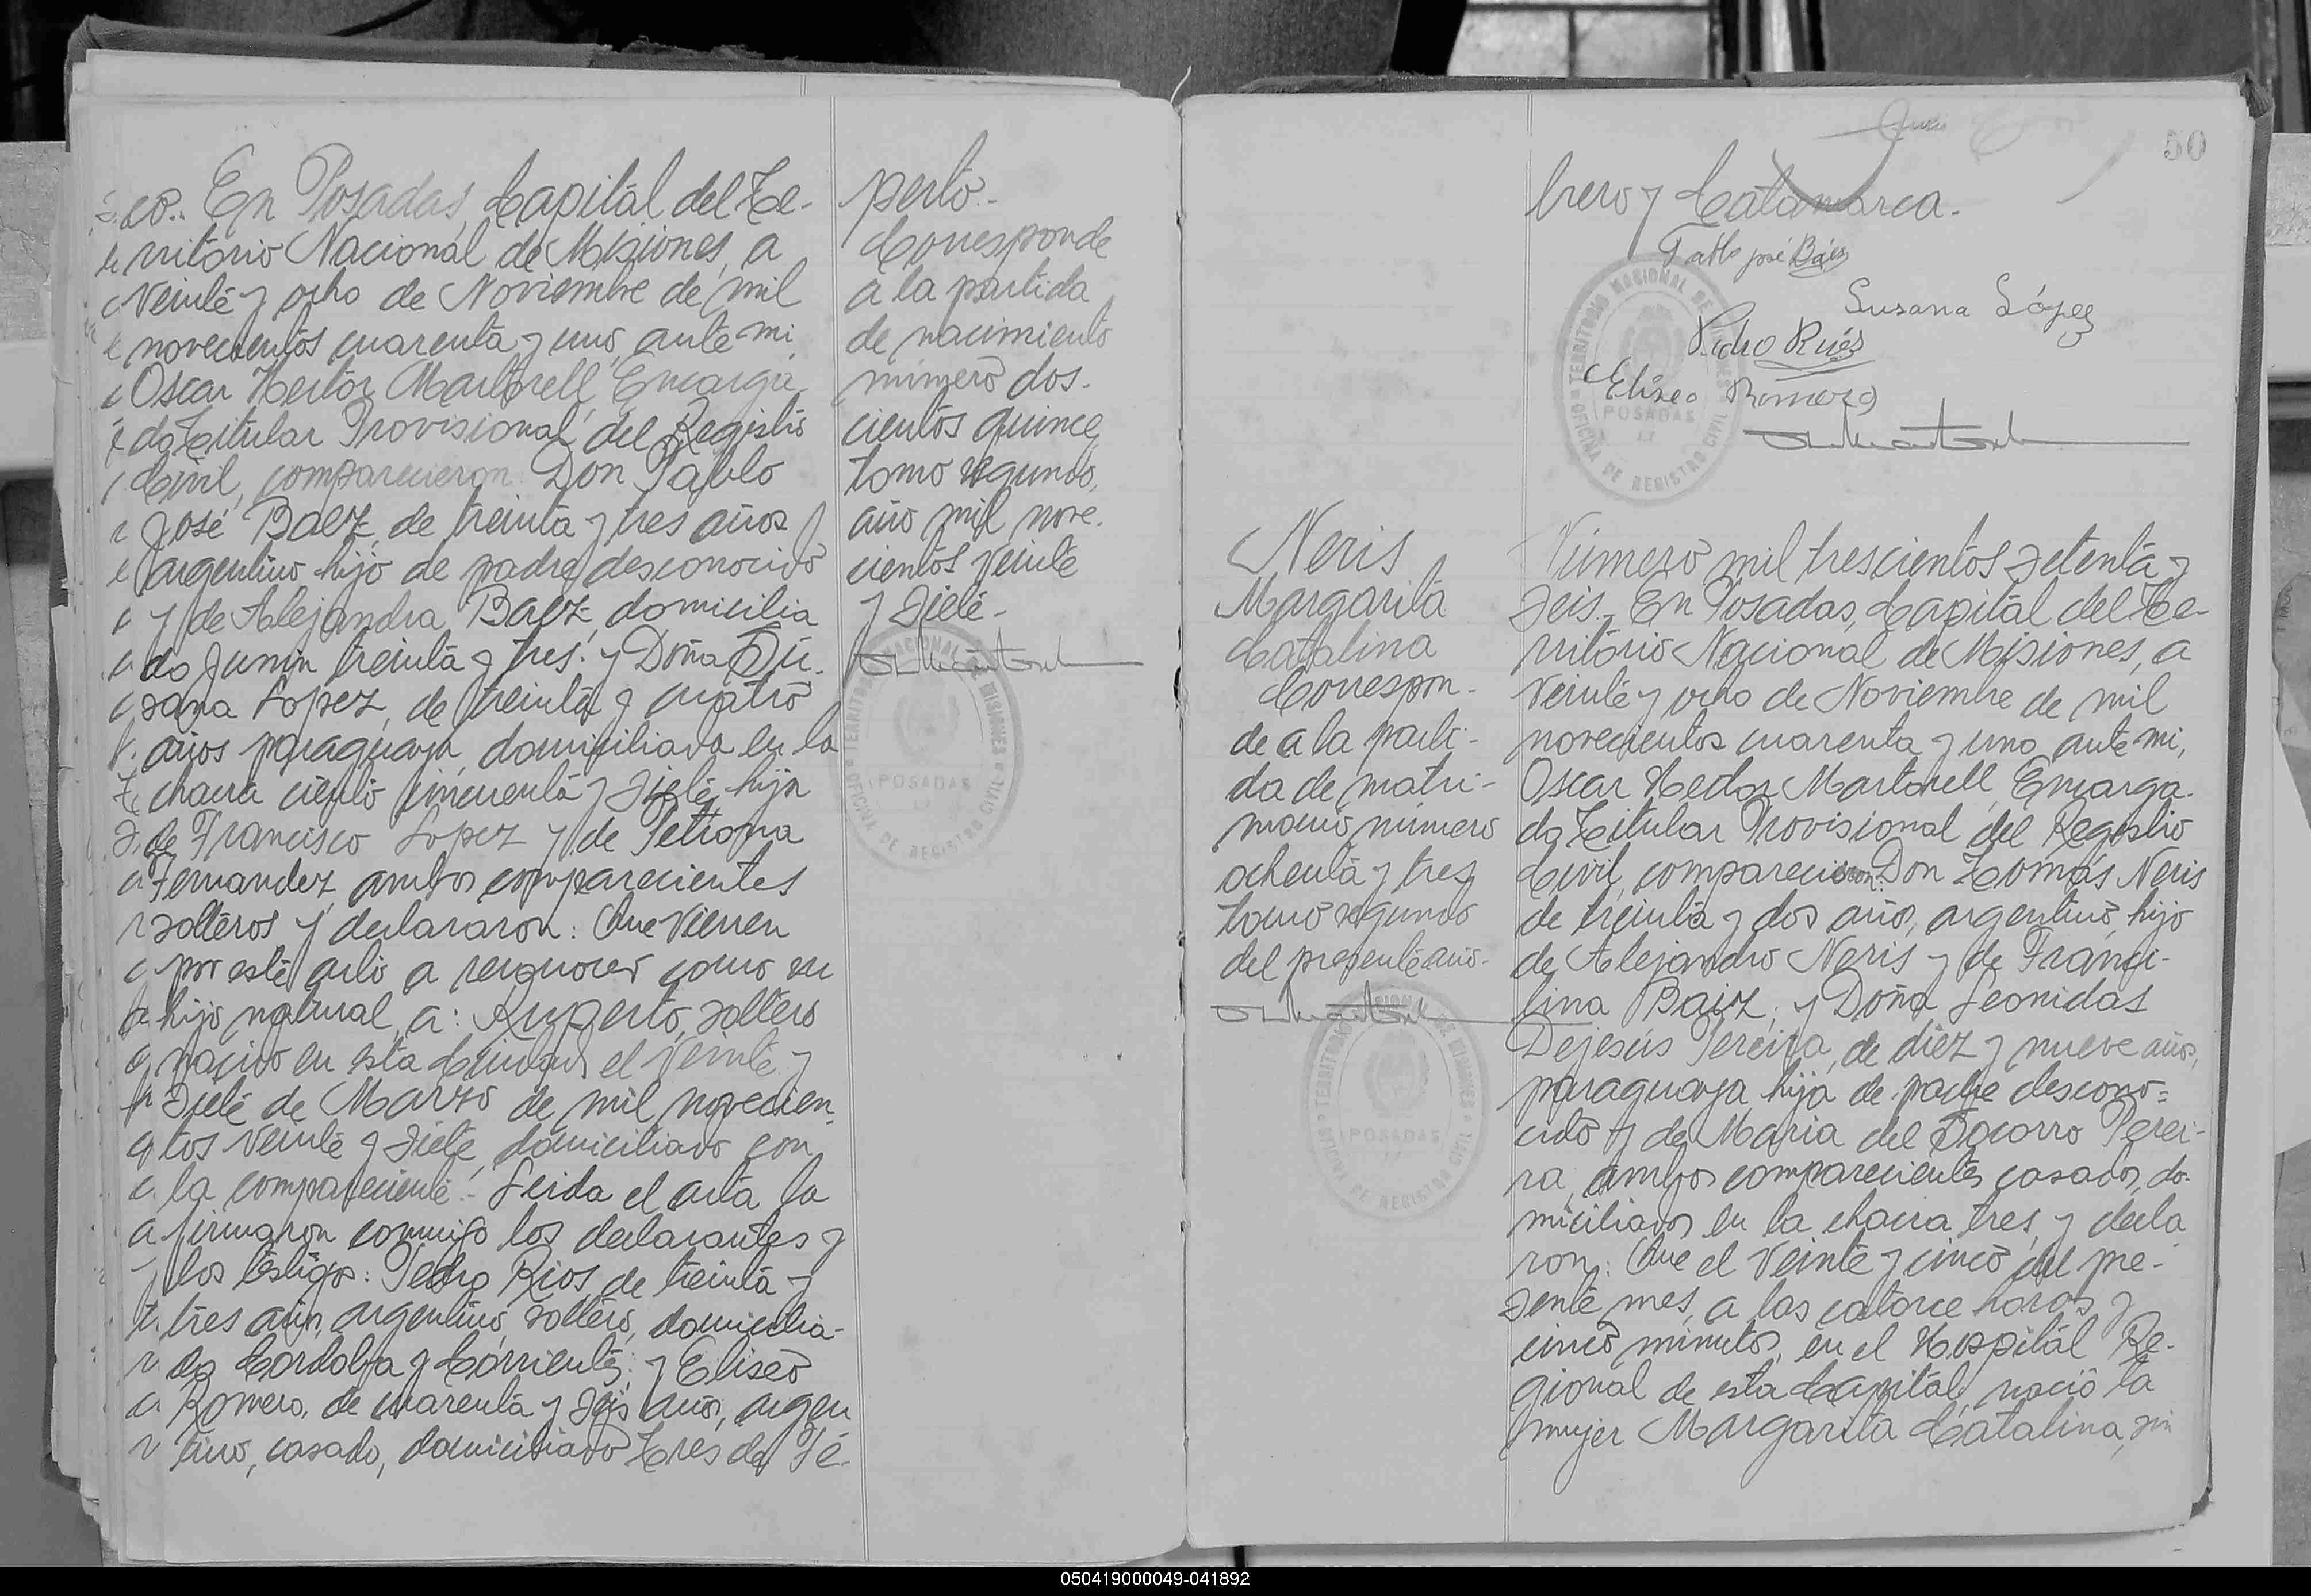 co.. En Posadas, Capital del Te-
rritorio Nacional de Misiones, a
Veinte y ocho de Noviembre de mil
novecientos cuarenta y uno, ante mi
Oscar Hector Martorell, Encarga
do Titular Provisional del Registro
Civil, comparecieron: Don Pablo
José Baez, de treinta y tres años
argentino, hijo de padre desconocido
y de Alejandra Baez, domicilia
do Junin treinta y tres; y Doña Su-
sana Lopez, de treinta y cuatro
años paraguaya, domiciliada en la
chacra ciento cincuenta y siete, hija
de Francisco Lopez y de Petrona
Fernandez, ambos comparecientes
solteros y declararon: Que Vienen
por este acto a reconocer como su
hijo natural, a: Ruperto, soltero
nacido en esta Ciudad el veinte y
siete de Marzo de mil novecien-
tos veinte y siete, domiciliado con
la compareciente.- Leida el acta la
firmaron conmigo los declarantes y
los testigos: Pedro Rios, de treinta y
tres años, argentino, soltero, domicilia-
do Cordoba y Corrientes; y Eliseo
Romero, de cuarenta y seis años, argen
tino, casado, domiciliado Tres de Fe-
perto.-
Corresponde
a la partida
de nacimiento
número dos-
cientos quince,
tomo segundo,
año mil nove-
cientos veinte
y siete.-
TERRITORIO NACIONAL DE MISIONES
POSADAS
OFICINA DE REGISTRO CIVIL
50
brero y Catamarca.-
Pablo José Báez
Susana López
Pedro Ríos
Eliseo Romero
TERRITORIO NACIONAL DE MISIONES
POSADAS
OFICINA DE REGISTRO CIVIL
Neris
Margarita
Catalina
Correspon-
de a la parti-
da de matri-
monio número
ochenta y tres
tomo segundo
del presente año.-
TERRITORIO NACIONAL DE MISIONES
POSADAS
OFICINA DE REGISTRO CIVIL
Número mil trescientos setenta y
seis.- En Posadas, Capital del Te-
rritorio Nacional de Misiones, a
Veinte y ocho de Noviembre de mil
novecientos cuarenta y uno, ante mi,
Oscar Hector Martorell, Encarga-
do Titular Provisional del Registro
Civil, comparecieron: Don Tomás Neris
de treinta y dos años, argentino, hijo
de Alejandro Neris y de Franci-
lina Baiz; y Doña Leonidas
Dejesús Pereira, de diez y nueve años,
paraguaya, hija de padre descono=
cido y de Maria del Socorro Perei-
ra, ambos comparecientes casados, do-
miciliados en la chacra tres, y decla
ron: Que el Veinte y cinco del pre-
sente mes, a las catorce horas y
cinco minutos, en el Hospital Re-
gional de esta Capital, nació la
mujer Margarita Catalina, sin
050419000049-041892